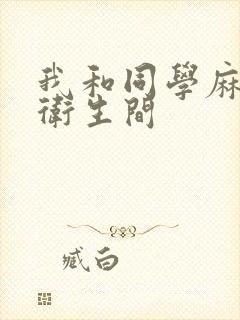 我和同學麻
衛生間
臧白